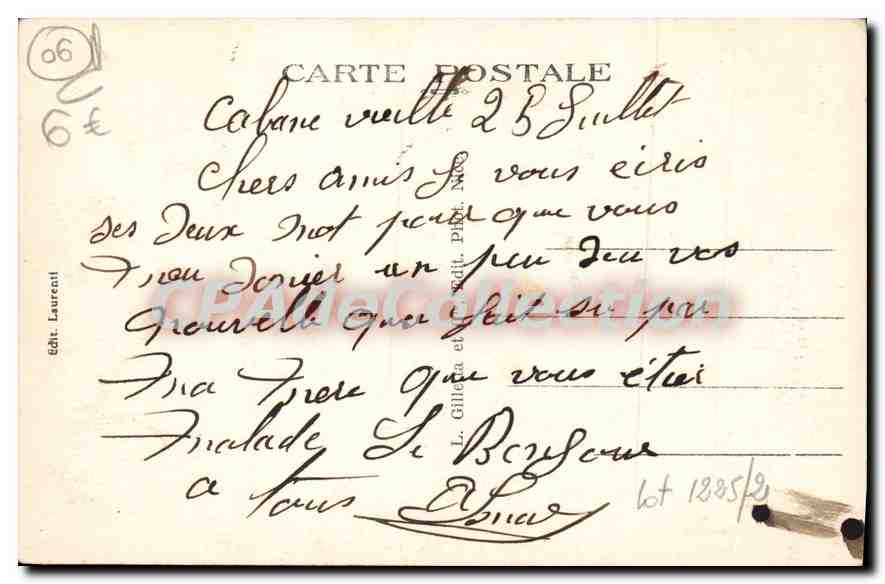 06
6 €
CARTE POSTALE
Cabane vielle 25 Juillet
Chers amis Je vous ecris
ses deux mot pour que vous
men donier un peu deu vos
nouvelle que fait su par
ma mere que vous étiei
malade Le Bonjour
a tous
Lot 1225/2
Edit. Laurenti
L. Gilletta et Edit. Phot. Nice
CPADeCollection